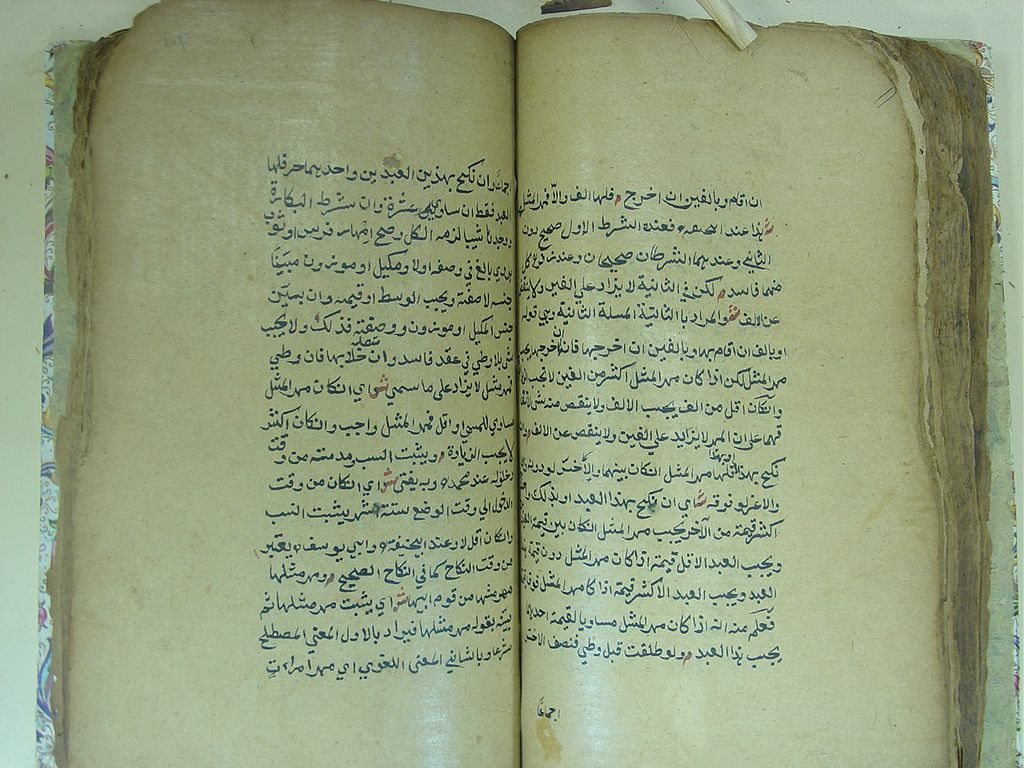 ان اقام وبالفين ان اخرج م فلها الف والا فمهر المثل
ش هذا عند ابي حنيفة ره فعنده الشرط الاول صحيح دون
الثاني وعندهما الشرطان صحيحان وعند زفر كل
منهما فاسد م لكن في الثانية لا يزاد على الفين ولا ينقص
عن الف ش والمراد بالثانية المسئلة الثانية وهي قوله
او بالف ان اقام بها وبالفين ان اخرجها فانه ان اخرجها يجب
مهر المثل لكن اذا كان مهر المثل اكثر من الفين لا تجب
وانكان اقل من الف يجب الالف ولا ينقص منه شي
على ان المهر لا يزايد على الفين ولا ينقص عن الالف
نكح بهذا او بهذا فلها مهر المثل انكان بينهما والاخس لو دونه
والاعز لو فوقه ش اي ان نكح بهذا العبد او بذلك
اكثر قيمة من الآخر يجب مهر المثل انكان بين قيمة
ويجب العبد الاقل قيمة اذا كان مهر المثل دون قيمة
العبد ويجب العبد الاكثر قيمة اذا كا مهر المثل فوق
فعلم منه انه اذا كان مهر المثل مساويا لقيمة احد
يجب هذا العبد م ولو طلقت قبل وطي فنصف الاخس
اجماعا
اجماعا وان نكح بهذين العبدين واحدهما حر فلها
العبد فقط ان ساوى عشرة وان شرط البكارة
ووجدها ثيبا لزمه الكل وصح امهار فرس او ثوب
هروي بالغ في وصفه اولا ومكيل او موزون مبينا
جنسه لا صفته ويجب الوسط او قيمته وان بين
جنس المكيل او موزون وصفته فذلك ولا يجب
شي بلا وطي في عقد فاسد وان خلا بها فان وطي
فمهر مثل لا يزاد على ما سمي ش اي انكان مهر المثل
مساوي للمسمى او اقل فمهر المثل واجب وانكان اكثر
لا يجب الزيادة م ويثبت النسب ومدته من وقت
دخوله عند محمد ره وبه يفتى ش اي انكان من وقت
الدخول الى وقت الوضع ستة اشهر يثبت النسب
وانكان اقل لا وعند ابي حنيفة ره وابي يوسف ره يعتبر
من وقت النكاح كما في النكاح الصحيح م ومهر مثلها
مهر مثلها من قوم ابيها ش اي يثبت مهر مثلها ثم
بينه بقوله مهر مثلها فيراد بالاول المعنى المصطلح
شرعا وبالثاني المعنى اللغوي اي مهر امراءة